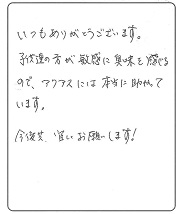 いつもありがとうございます。
子供達の方が敏感に臭味を感じる
ので、アクアスには本当に助かって
います。
今後共、宜しくお願いします!